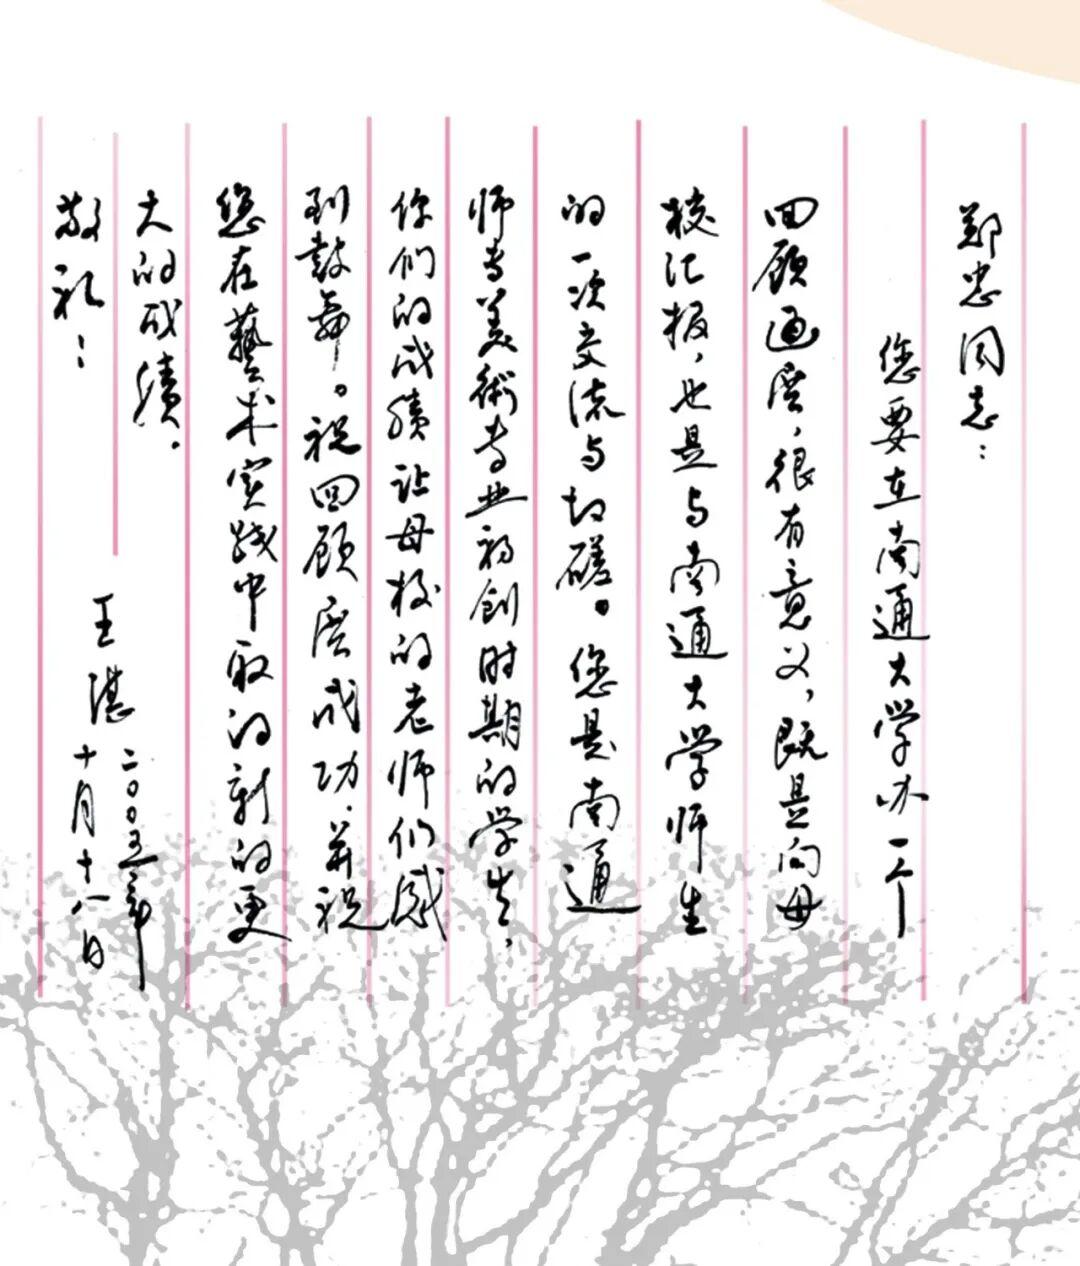 郑忠同志：
您要在南通大学办一个
回顾画展，很有意义，既是向母
校汇报，也是与南通大学师生
的一次交流与切磋。您是南通
师专美術专业初创时期的学生，
你们的成绩让母校的老师们感
到鼓舞。祝回顾展成功，并祝
您在藝术实践中取得新的更
大的成绩。
敬礼：
王湛
二〇〇五年
十月十八日